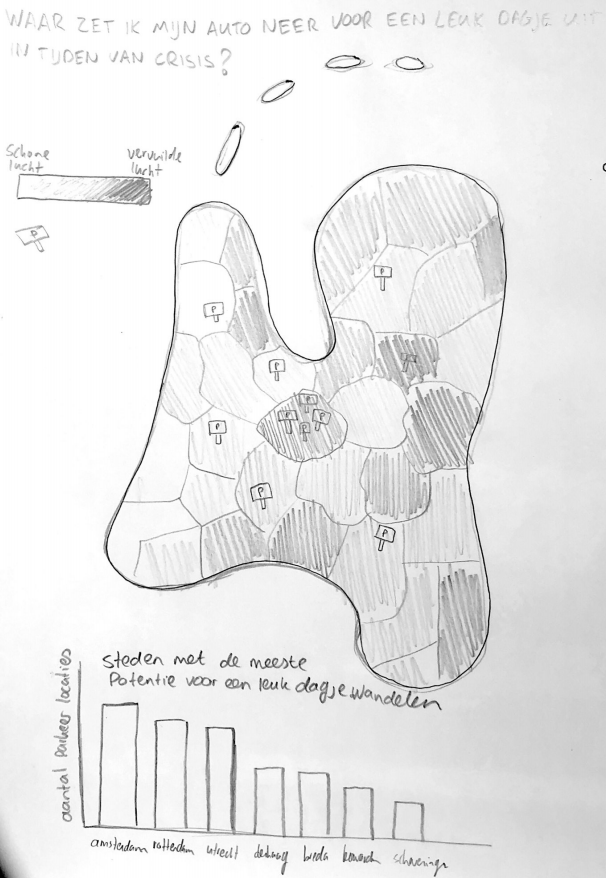 WAAR ZET IK MIJN AUTO NEER VOOR EEN LEUK DAGJE UIT
IN TIJDEN VAN CRISIS?
schone
lucht
vervuilde
lucht
P
P
P
P
P
P
P
P
P
P
P
P
steden met de meeste
Potentie voor een leuk dagje wandelen
aantal parkeer locaties
amsterdam rotterdam utrecht denhaag breda